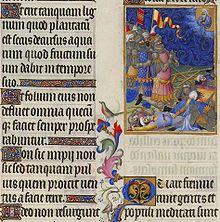 Et erit tanquam lig
num quod plantatū
est secus decursus aqua
rum quod fructum su
um dabit in tempore
suo
Et folium eius non
defluet omnia
q faciet semper prospe
rabuntur
Non sic impij non
sic sed tanquam pul
uis quem proicit uen
tus a facie terre
Ideo non resurgunt
fremue
gentes et
populi meditati